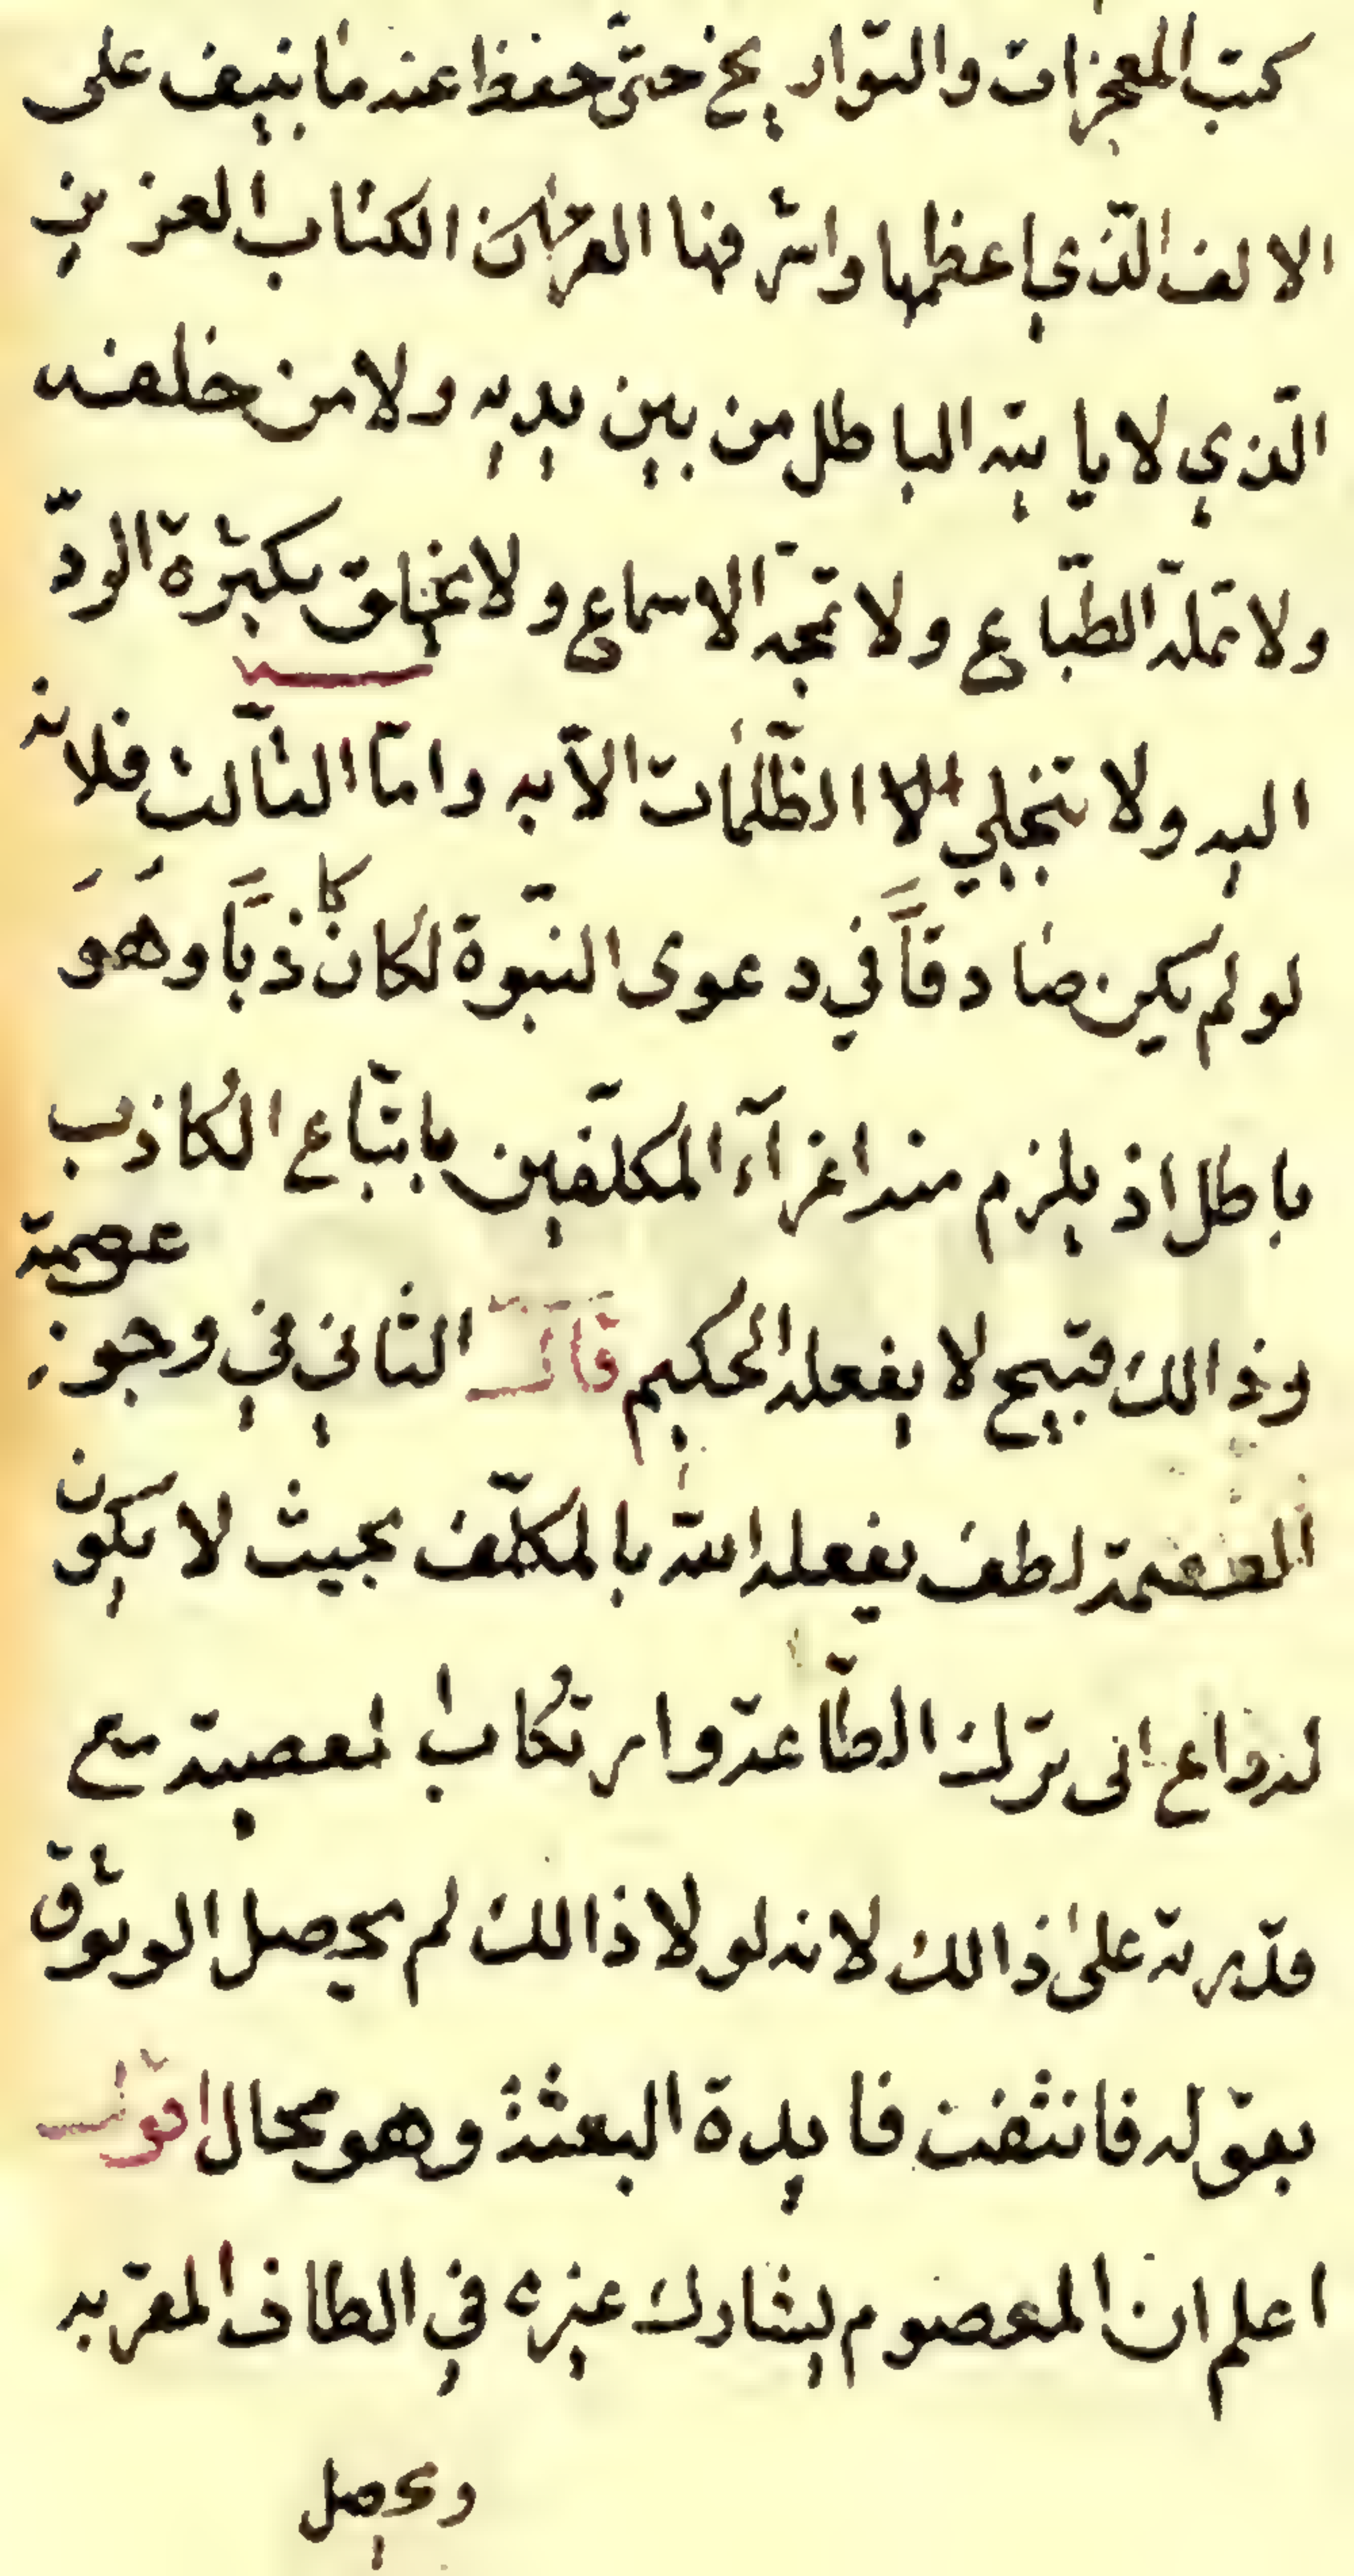 كتب المعجزات والتواريخ حتّى حفظ عنه ما ينيف على
الالف الّذي اعظمها واشرفها القرآن الكتاب العزيز
الّذي لا ياتيه الباطل من بين يديه ولا من خلفه
ولا تملّه الطّباع ولا تمجّه الاسماع ولا يخلق بكثرة الردّ
اليه ولا تنجلي الظّلمات الّا به وامّا الثّالث فلانه
لو لم يكن صادقاً في دعوى النّبوة لكان كاذباً وهو
باطل اذ يلزم منه اغرآء المكلّفين باتّباع الكاذب
وذالك قبيح لا يفعله الحكيم قال الثاني في وجوب عصمة
العصمة لطف يفعله الله بالمكلّف بحيث لا يكون
له داع الى ترك الطّاعة وارتكاب المعصية مع
قدرته على ذالك لانه لولا ذالك لم يحصل الوثوق
بقوله فانتفت فايدة البعثة وهو محال اقول
اعلم ان المعصوم يشارك غيره في الطاف المقربه
ويحصل